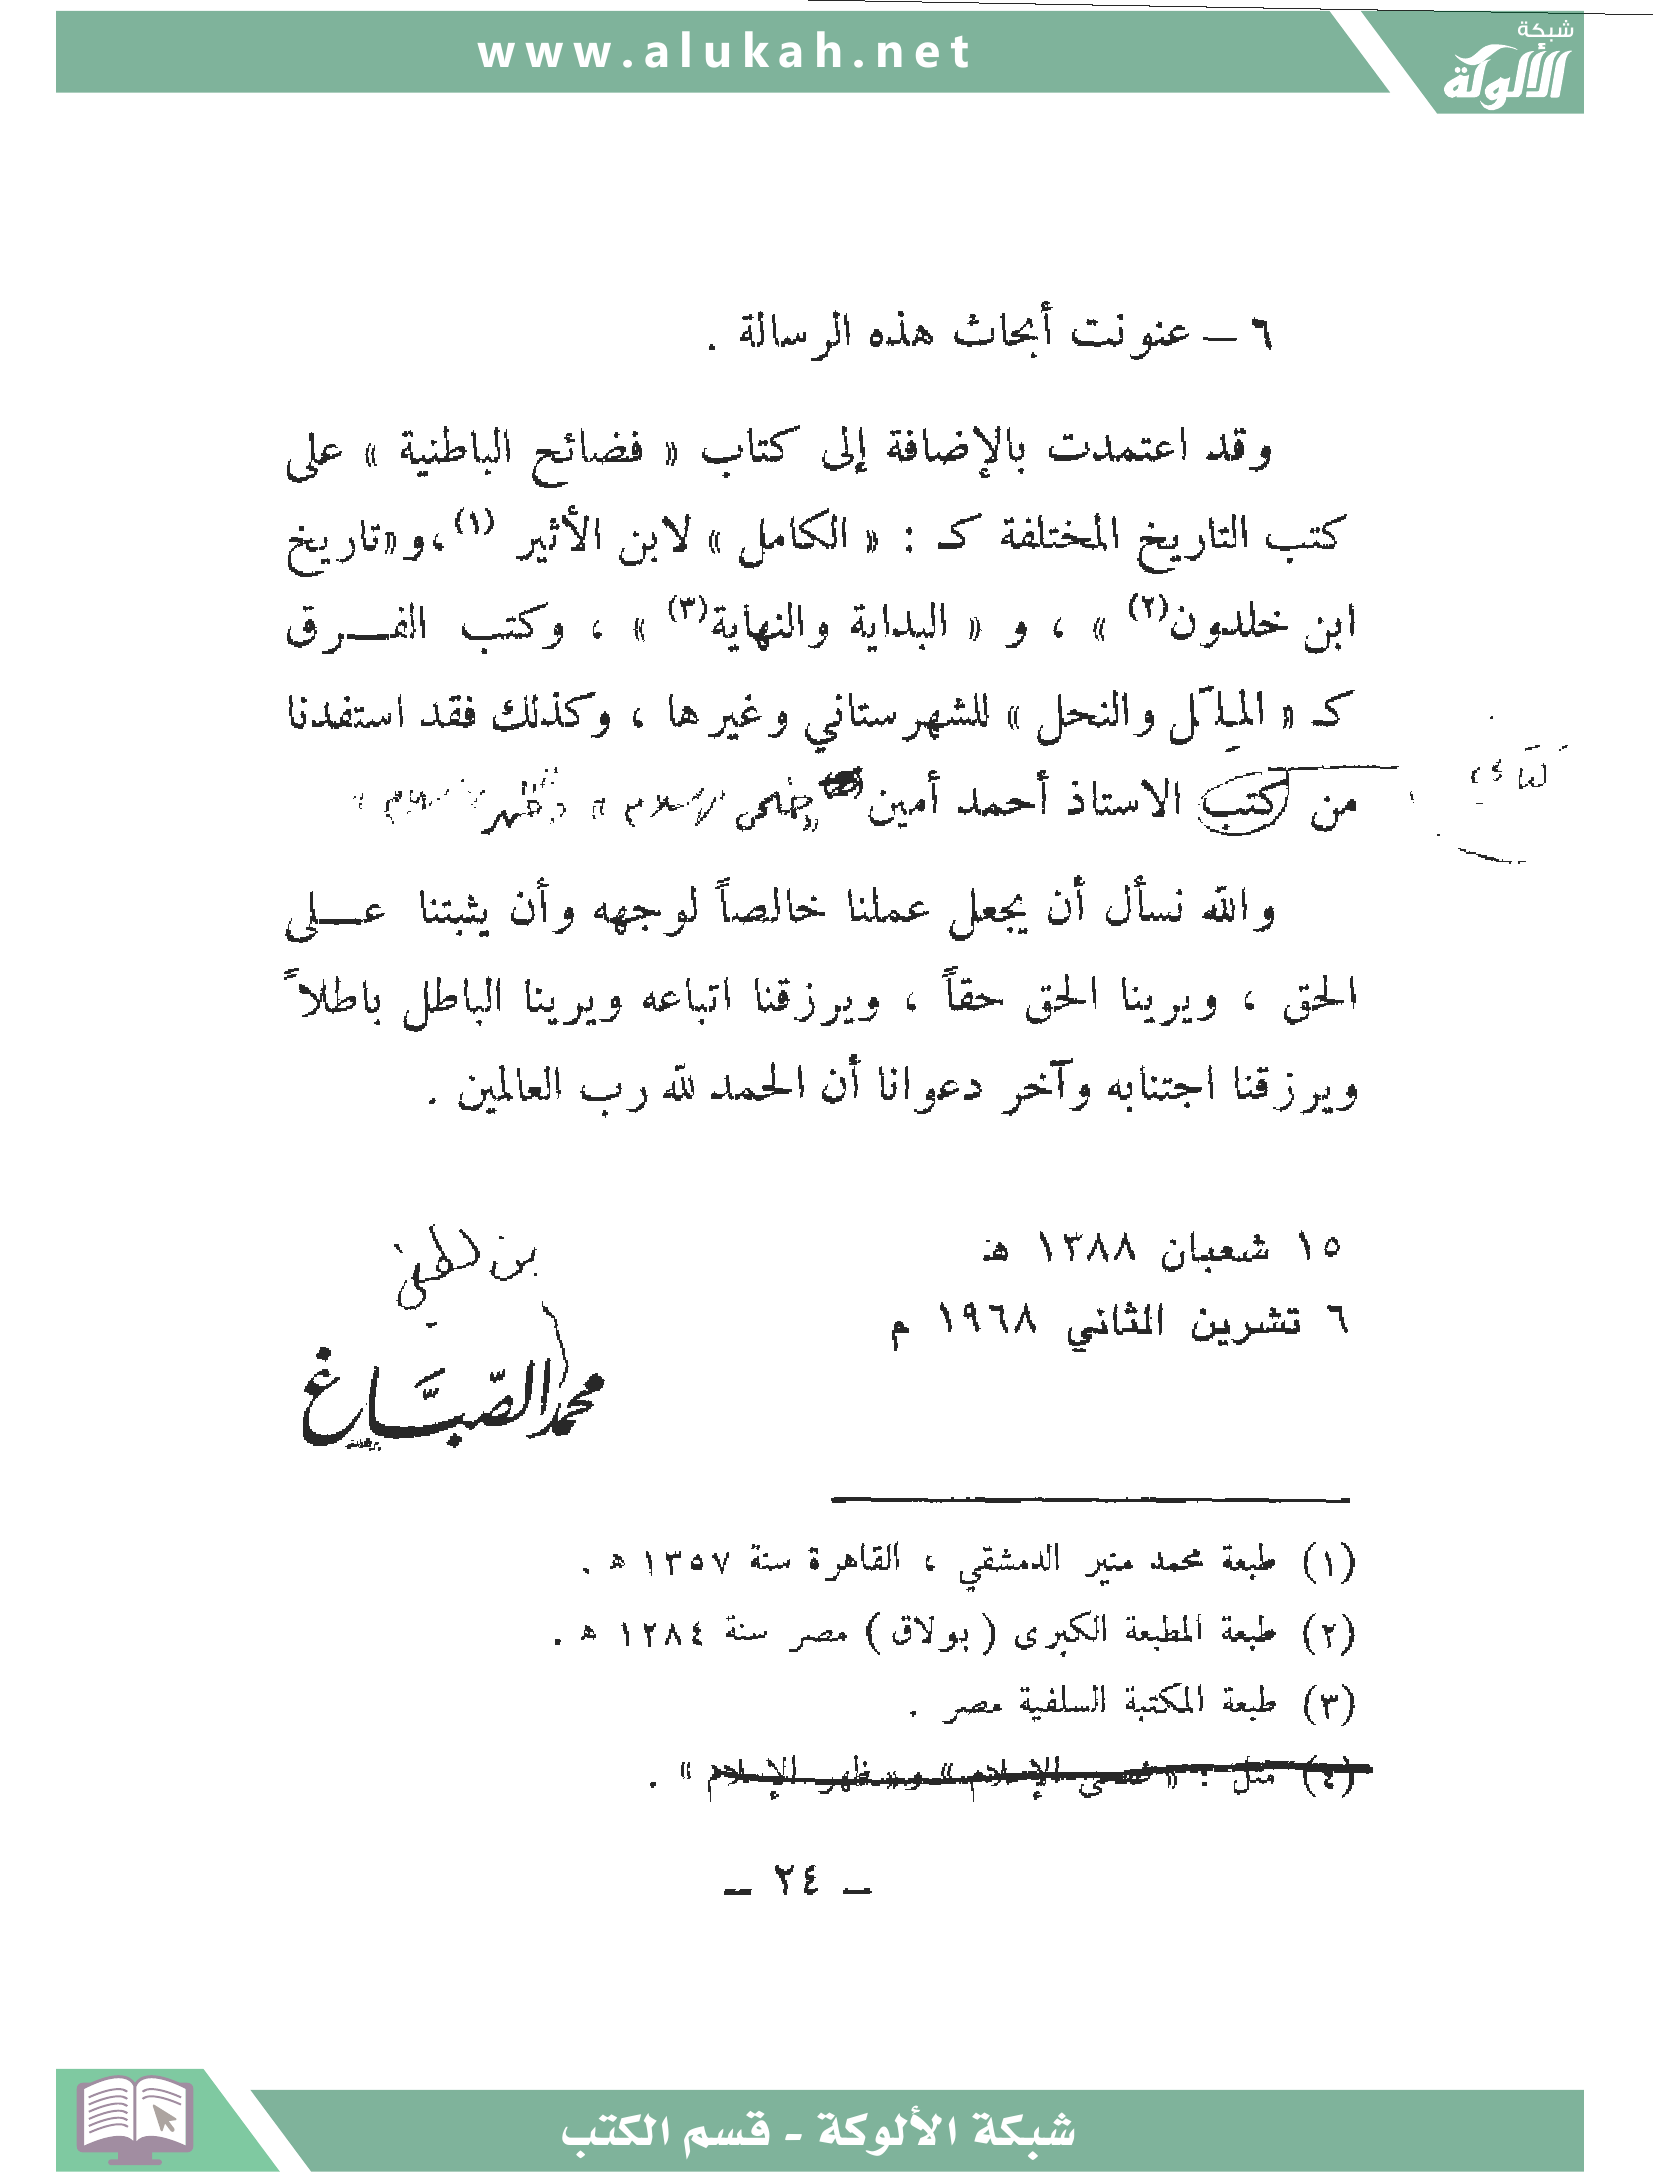 www.alukah.net
شبكة
الألوكة
٦ – عنونت أبحاث هذه الرسالة .
وقد اعتمدت بالإضافة إلى كتاب « فضائح الباطنية » على
كتب التاريخ المختلفة كـ : « الكامل » لابن الأثير (١)،و«تاريخ
ابن خلدون(٢) » ، و « البداية والنهاية(٣) » ، وكتب الفـرق
كـ « الملِـَل والنحل » للشهرستاني وغيرها ، وكذلك فقد استفدنا
من كتب الاستاذ أحمد أمين «ضحى الإسلام » وظهر الإسلام »
والله نسأل أن يجعل عملنا خالصاً لوجهه وأن يثبتنا عـلى
الحق ، ويرينا الحق حقاً ، ويرزقنا اتباعه ويرينا الباطل باطلاً
ويرزقنا اجتنابه وآخر دعوانا أن الحمد لله رب العالمين .
١٥ شعبان ١٣٨٨ هـ
٦ تشرين الثاني ١٩٦٨ م
بن لطفي
محمد الصّبَّاغ
(١) طبعة محمد منير الدمشقي ، القاهرة سنة ١٣٥٧ هـ .
(٢) طبعة المطبعة الكبرى ( بولاق ) مصر سنة ١٢٨٤ هـ .
(٣) طبعة المكتبة السلفية مصر .
(٤) مثل : « ضحى الإسلام » و« ظهر الإسلام » .
– ٢٤ –
شبكة الألوكة - قسم الكتب